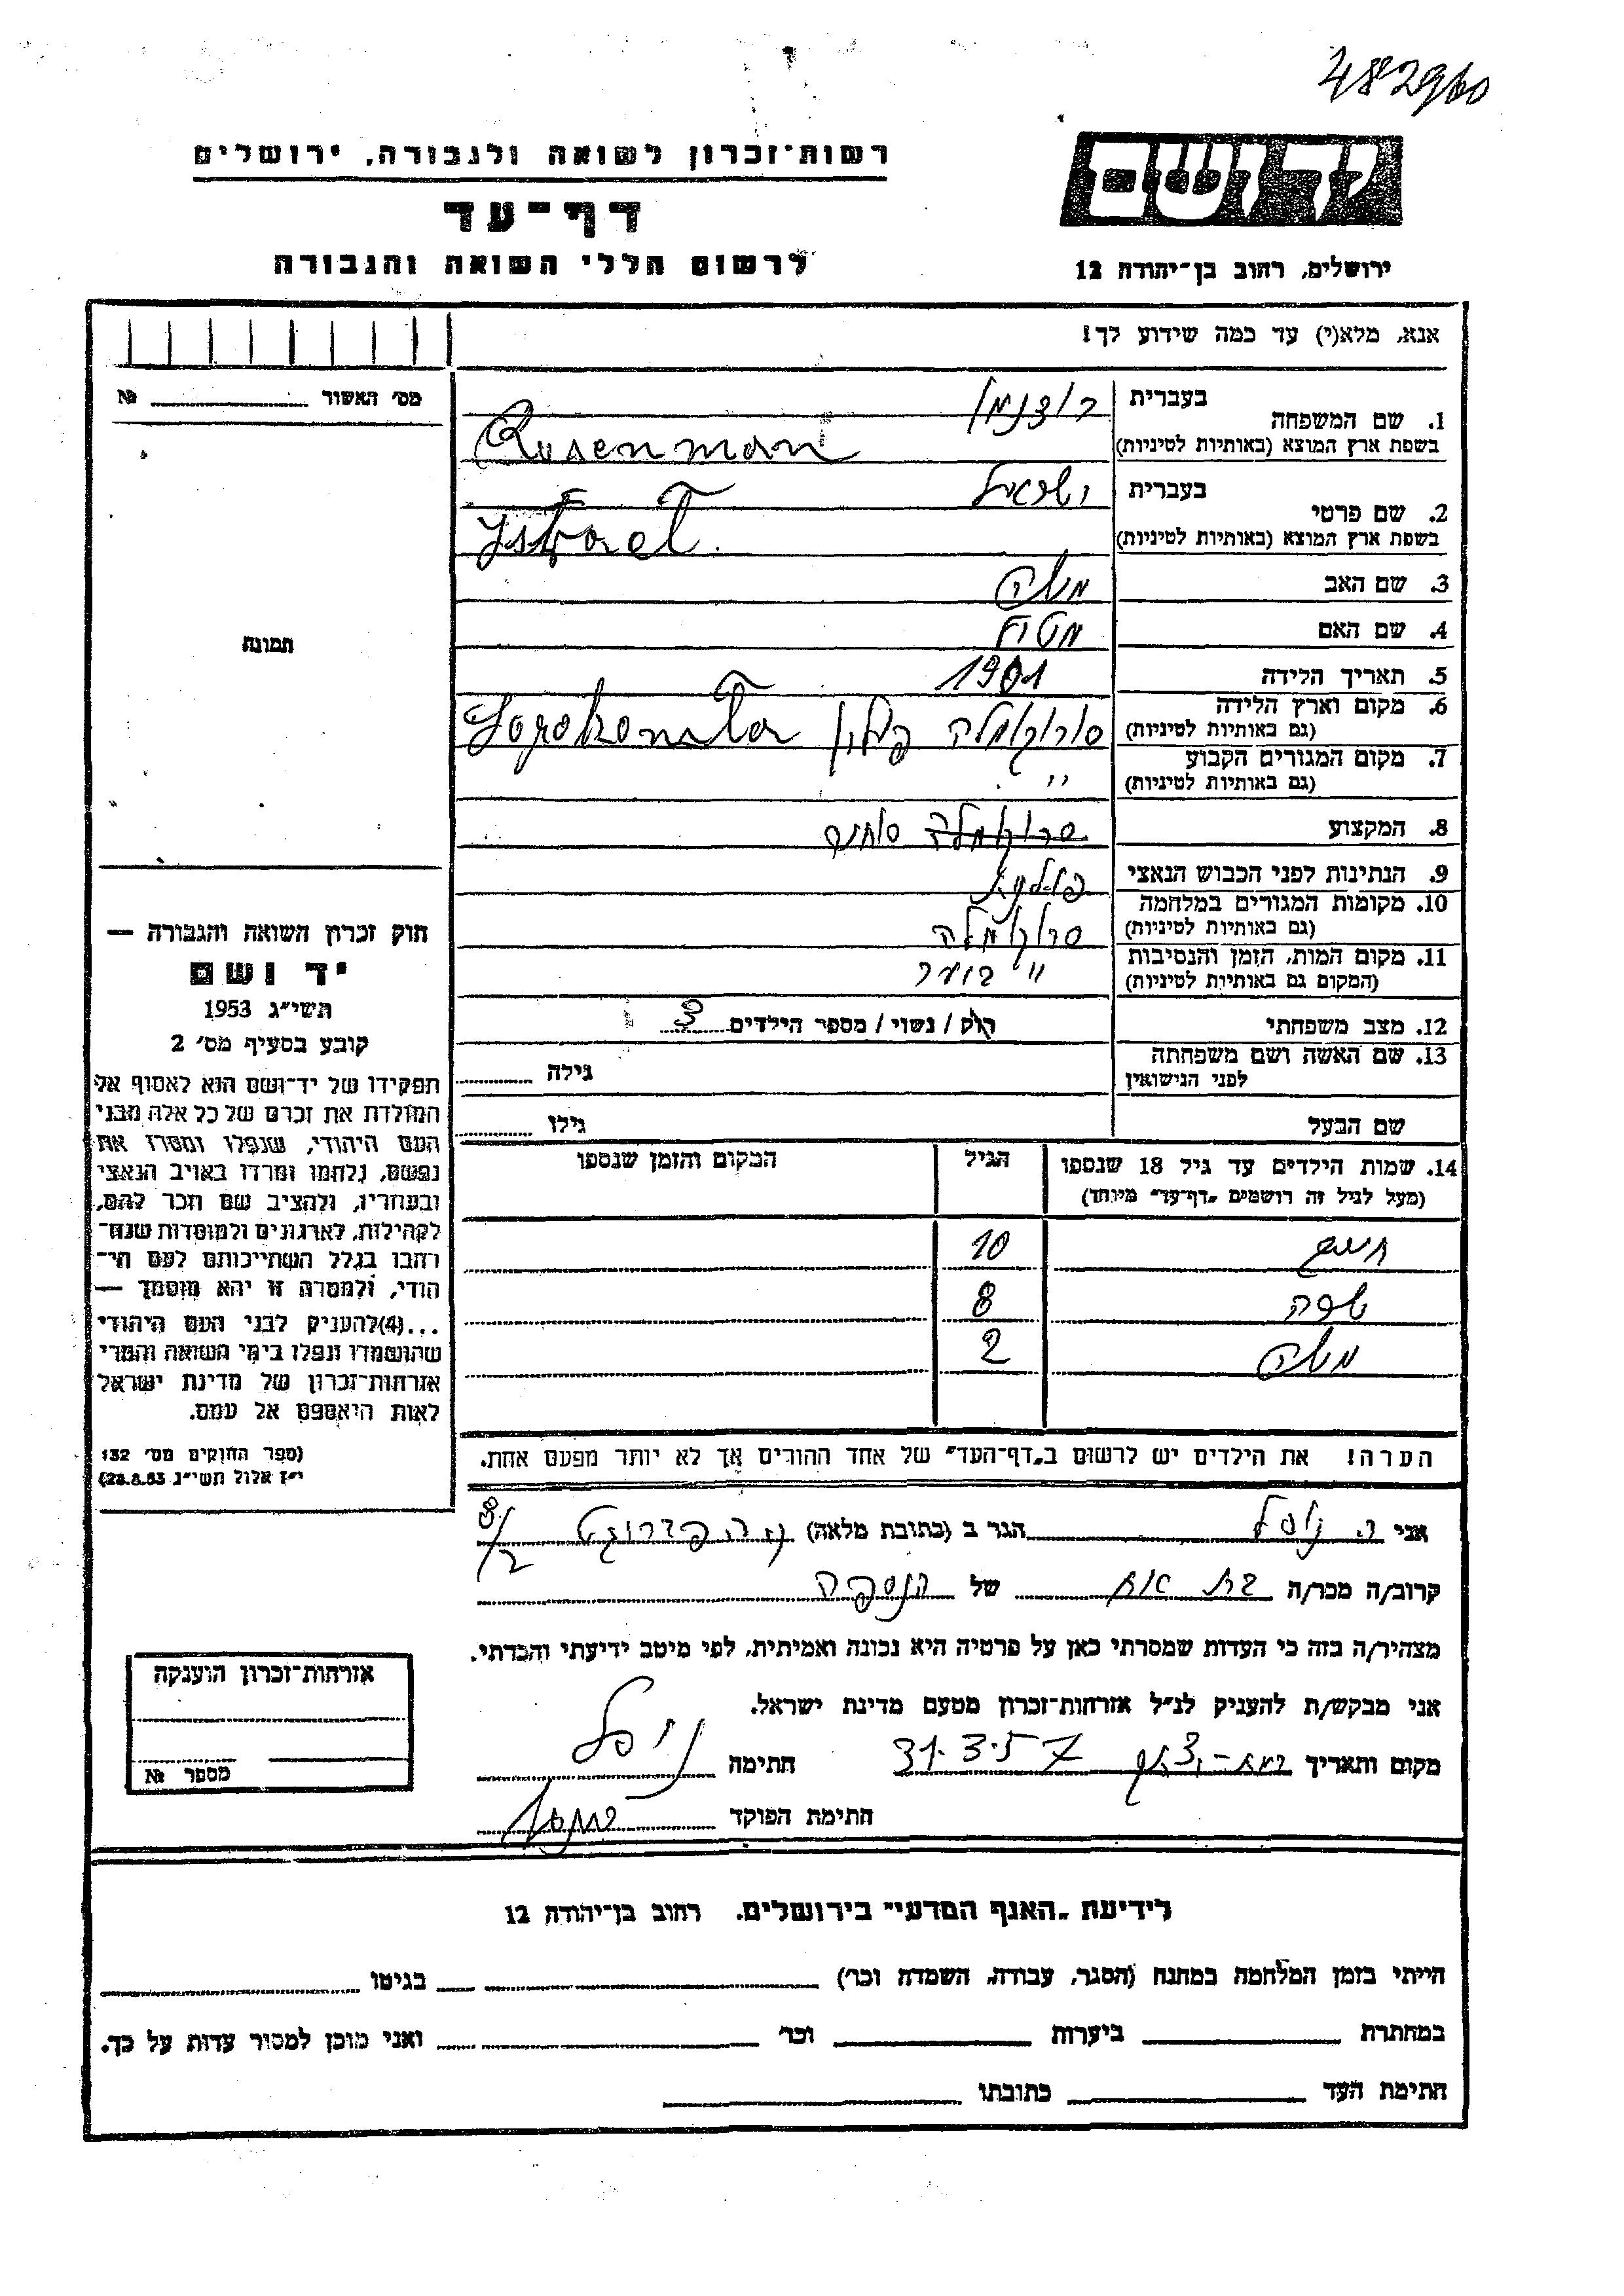 482960
רשות־זכרון לשואה ולגבורה, ירושלים
יד ושם
דף־עד
לרשום חללי השואה והגבורה
ירושלים, רחוב בן־יהודה 12
אנא, מלא(י) עד כמה שידוע לך!
מס׳ האשור № 
1. שם המשפחה בעברית רוזנמן
בשפת ארץ המוצא (באותיות לטיניות) Rosenman
2. שם פרטי בעברית ישראל
בשפת ארץ המוצא (באותיות לטיניות) Jstrael
3. שם האב משה
4. שם האם
תמונה
5. תאריך הלידה 1901
6. מקום וארץ הלידה (גם באותיות לטיניות) סורוקומלה פולין Sorokomla
7. מקום המגורים הקבוע (גם באותיות לטיניות) ״
8. המקצוע סרוקומלה סוחר
9. הנתינות לפני הכבוש הנאצי פולנית
10. מקומות המגורים במלחמה (גם באותיות לטיניות) סרוקומלה
11. מקום המות, הזמן והנסיבות (המקום גם באותיות לטיניות) ״
12. מצב משפחתי רווק / נשוי / מספר הילדים 3
13. שם האשה ושם משפחתה לפני הנישואין גילה
שם הבעל גילו
14. שמות הילדים עד גיל 18 שנספו הגיל המקום והזמן שנספו
(מעל לגיל זה רושמים „דף־עד״ מיוחד)
10
שפה 8
משה 2
הערה! את הילדים יש לרשום ב„דף־העד״ של אחד ההורים אך לא יותר מפעם אחת.
חוק זכרון השואה והגבורה —
יד ושם
תשי״ג 1953
קובע בסעיף מס׳ 2
תפקידו של יד־ושם הוא לאסוף אל
המולדת את זכרם של כל אלה מבני
העם היהודי, שנפלו ומסרו את
נפשם, נלחמו ומרדו באויב הנאצי
ובעוזריו, ולהציב שם וזכר להם,
לקהילות, לארגונים ולמוסדות שנח־
רבו בגלל השתייכותם לעם הי־
הודי, ולמטרה זו יהא מוסמך —
...(4) להעניק לבני העם היהודי
שהושמדו ונפלו בימי השואה והמרי
אזרחות־זכרון של מדינת ישראל
לאות היאספם אל עמם.
(ספר החוקים מס׳ 132
י״ז אלול תשי״ג 28.8.53)
אני הגר ב (כתובת מלאה) 8/2
קרוב/ה מכר/ה בת אח של הנספה
מצהיר/ה בזה כי העדות שמסרתי כאן על פרטיה היא נכונה ואמיתית, לפי מיטב ידיעתי והכרתי.
אני מבקש/ת להעניק לנ״ל אזרחות־זכרון מטעם מדינת ישראל.
מקום ותאריך 31.3.57 חתימה
חתימת הפוקד
אזרחות־זכרון הוענקה
מספר №
לידיעת „האגף המדעי״ בירושלים, רחוב בן־יהודה 12
הייתי בזמן המלחמה במחנה (הסגר, עבודה, השמדה וכו׳) בגיטו
במחתרת ביערות וכו׳ ואני מוכן למסור עדות על כך.
חתימת העד כתובתו